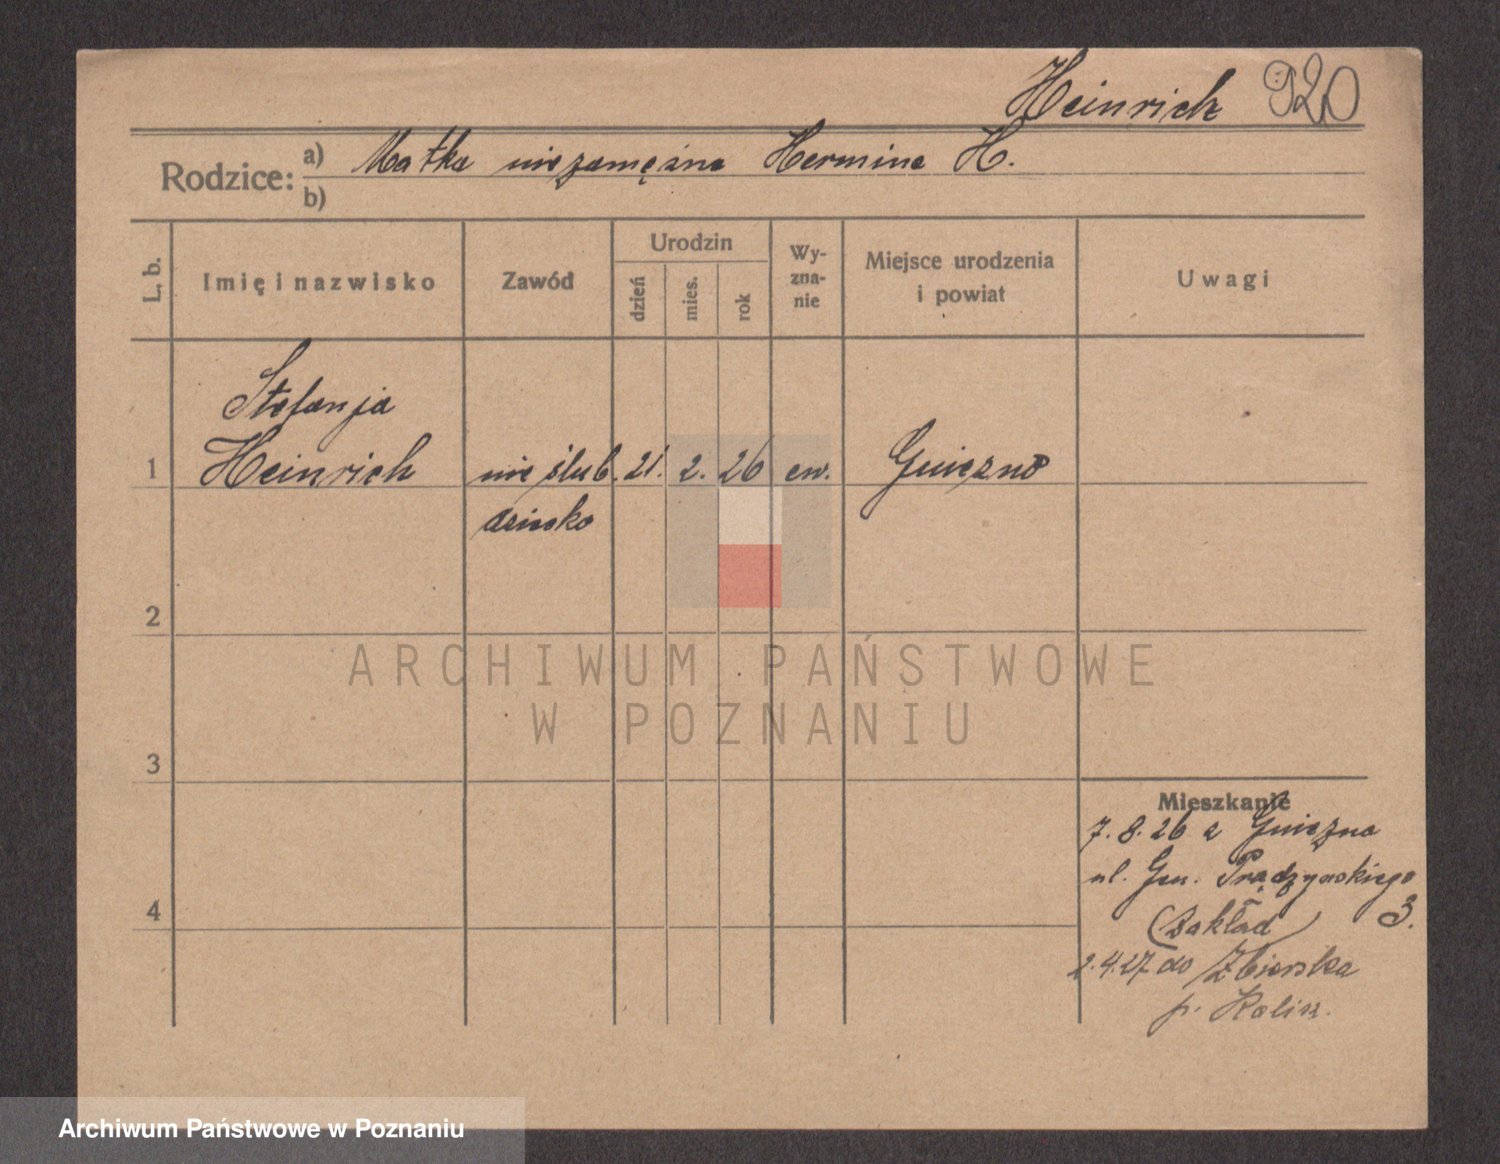 Heinrich 920
Rodzice: a) Matka niezamężna Hermine H.
b)
L. b.
Imię i nazwisko
Zawód
Urodzin
dzień
mies.
rok
Wy-
zna-
nie
Miejsce urodzenia
i powiat
Uwagi
Stefanja
1 Heinrich nieślub. 21. 2. 26 ew. Gniezno
dziecko
2
3
4
Mieszkanie
7. 8. 26 z Gniezna
ul. Gen. Prądzyńskiego
(Zakład) 3.
2.4.27 do Zbierska
p. Kalisz.
ARCHIWUM PAŃSTWOWE
W POZNANIU
Archiwum Państwowe w Poznaniu